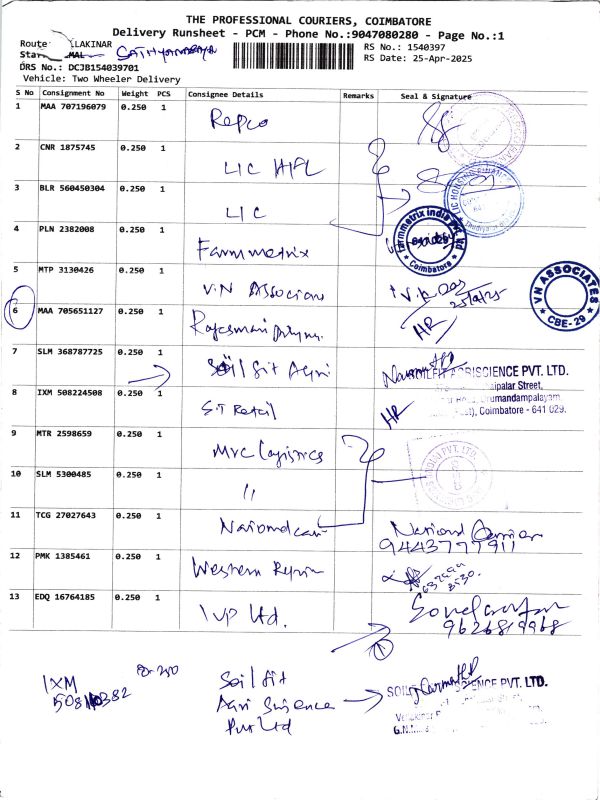 THE PROFESSIONAL COURIERS, COIMBATORE
Delivery Runsheet - PCM - Phone No.:9047080280 - Page No.:1
Route: LAKINAR
RS No.: 1540397
RS Date: 25-Apr-2025
DRS No.: DCJB154039701
Vehicle: Two Wheeler Delivery
S No Consignment No Weight PCS Consignee Details Remarks Seal & Signature
1 MAA 707196079 0.250 1 Repco
2 CNR 1875745 0.250 1 LIC HFL
3 BLR 560450304 0.250 1 LIC
4 PLN 2382008 0.250 1 Farmmetrix
farmmetrix india pvt ltd
Coimbatore
5 MTP 3130426 0.250 1 V.N Associan
VN ASSOCIATES
CBE-29
6 MAA 705651127 0.250 1
HR
7 SLM 368787725 0.250 1 Soil fit Agri
SOILFIT AGRISCIENCE PVT. LTD.
aipalar Street,
urumandampalayam,
Coimbatore - 641 029.
8 IXM 508224508 0.250 1 S.T Retail
HR
9 MTR 2598659 0.250 1 MVC Logistics
10 SLM 5300485 0.250 1 11
11 TCG 27027643 0.250 1 National carri
National Carrier
9443777911
12 PMK 1385461 0.250 1 Western
13 EDQ 16764185 0.250 1 IVP Ltd.
9626819968
IXM
Soil fit
Agri Science
Pvt Ltd
SOIL SCIENCE PVT. LTD.